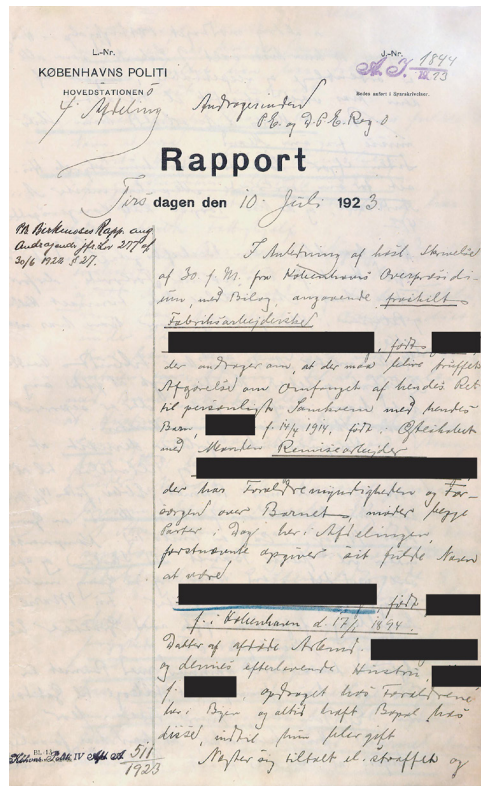 L.-Nr.
J.-Nr.
1844
A. J. IV 23
KØBENHAVNS POLITI
HOVEDSTATIONEN
Bedes anført i Svarskrivelser.
4' Afdeling
Andragerinden
P.E. og D.P.E. Reg. 0
Rapport
Tirsdagen den 10. Juli 1923
Pb. Birkemoses Rapp. ang.
Andragende jfr. Lov 277 af
30/6 1922 § 27.
I Anledning af høst. Skrivelse
af 30. f. M. fra Københavns Overpræsidi-
um, med Bilag, angaaende frashilt
Fabriksarbejderske
, født
der andrager om, at der maa blive truffet
Afgørelse om Omfanget af hendes Ret
til personligt Samkvem med hendes
Barn, f. 14/ 1914, født i Ægteskabet
med Manden Remisearbejder
der har Forældremyndigheden og For-
sorgen over Barnet, møder begge
Parter i Dag her i Afdelingen,
førstnævnte opgiver sit fulde Navn
at være
, født
f. i København d. 17/ 1894.
Datter af afdøde Arbmd.
og dennes efterlevende Hustru,
f. , opdraget hos Forældrene
her i Byen og altid haft Bopæl hos
disse, indtil hun blev gift
Nægter sig tiltalt el. straffet og
IV Afd. A 511
1923